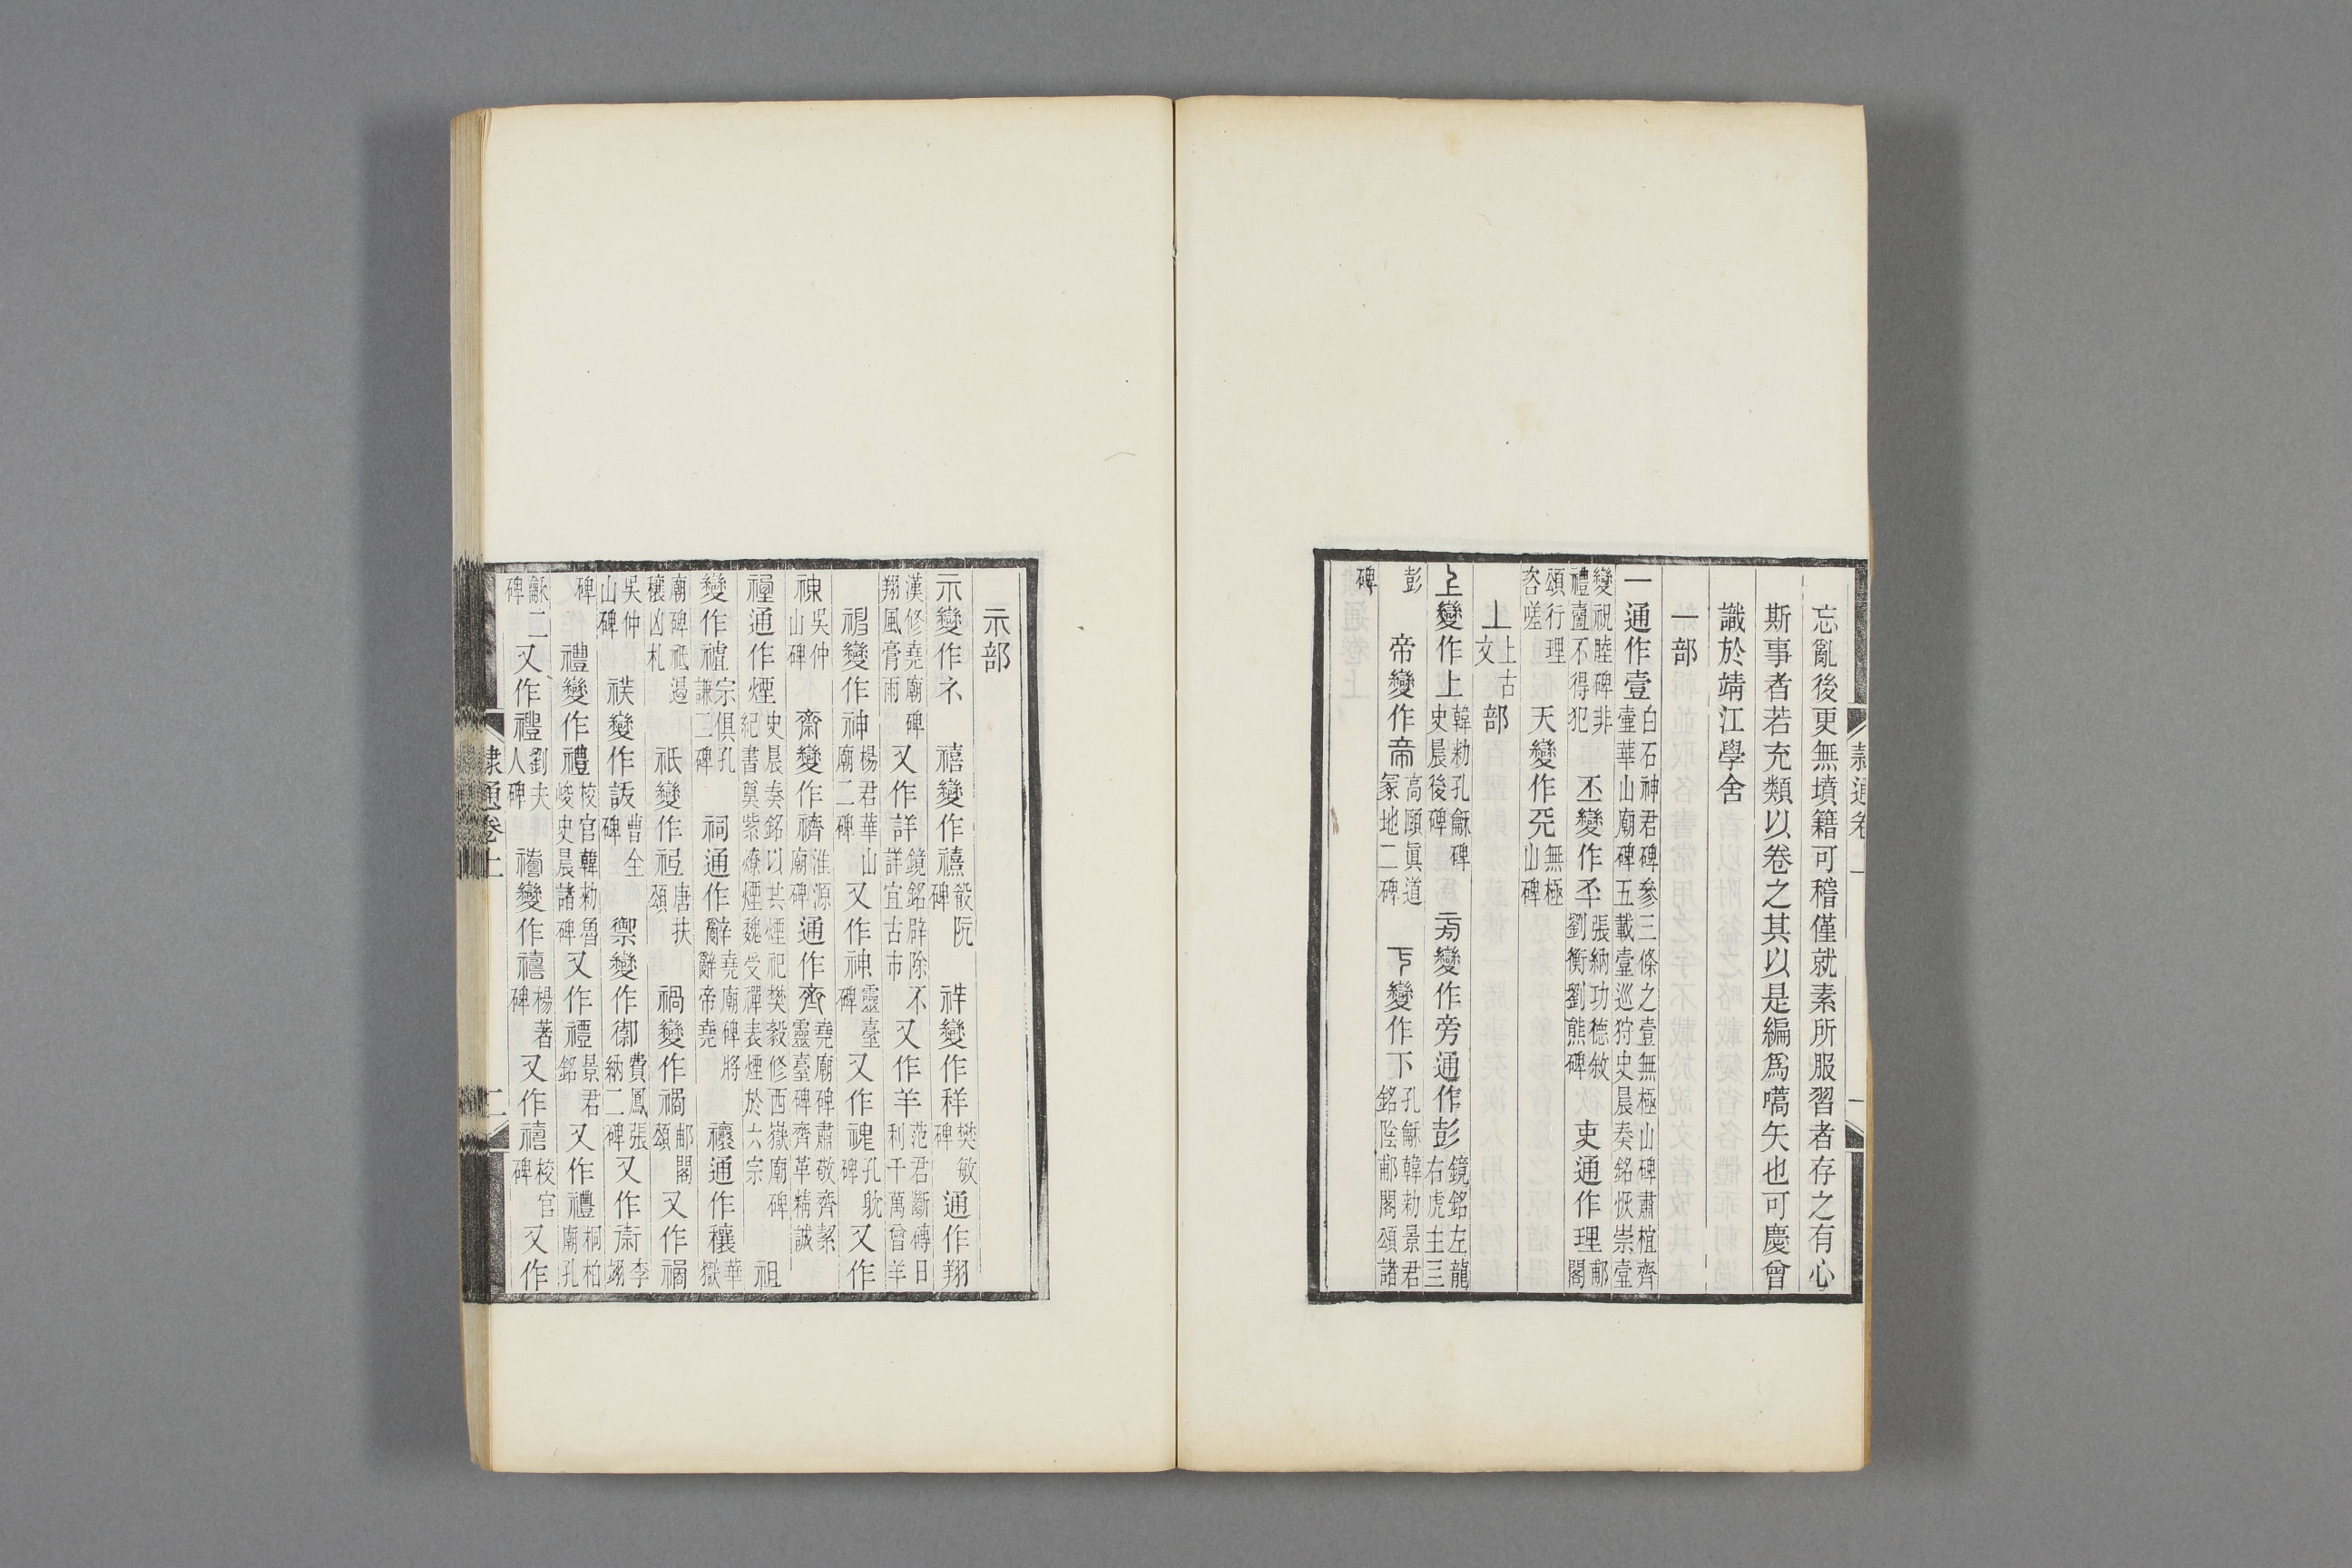 忘亂後更無墳籍可稽僅就素所服習者存之有心
斯事者若充類以卷之其以是編爲嚆矢也可慶曾
識於靖江學舍
一部
一通作壹白石神君碑參三條之壹無極山碑肅植齊壺華山廟碑五載壹巡狩史晨奏銘恢崇壹
變祝睦碑非禮壹不得犯 丕變作㔻張納功德敘劉衡劉熊碑 吏通作理郙閣
頌行理咨嗟 天變作兲無極山碑
丄上古文部
丄變作上韓勑孔龢碑史晨後碑 旁變作旁通作彭鏡銘左龍右虎主三
彭 帝變作帝高頤眞道冢地二碑 丅變作下孔龢韓勑景君銘陰郙閣頌諸
碑
隸通卷上 一
示部
示變作礻 禧變作禧殽阮碑 祥變作祥樊敏碑 通作翔
漢修堯廟碑翔風膏雨 又作詳鏡銘辟除不詳宜古市 又作羊范君斷磚日利千萬曾羊
䄠變作神楊君華山廟二碑 又作神靈臺碑 又作䰠孔躭碑 又作
䄠吳仲山碑 齋變作𪗋淮源廟碑 通作齊堯廟碑肅敬齊絜靈臺碑齊革精誠
禋通作煙史晨奏銘以共煙祀樊毅修西嶽廟碑紀書奠紫燎煙魏受禪表煙於六宗 祖
變作䄟宗俱孔謙二碑 祠通作辭堯廟碑將辭帝堯 禳通作穰華嶽
廟碑祇遏穰凶札 祇變作𥘵唐扶頌 禍變作禍郙閣頌 又作禍
吳仲山碑 䄃變作䛀曹全碑 禦變作禦費鳳張納二碑 又作禦李翊
碑 禮變作禮校官韓勑魯峻史晨諸碑 又作禮景君銘 又作禮桐柏廟孔
龢二碑 又作禮劉夫人碑 禧變作禧楊著碑 又作禧校官碑 又作
隸通卷上 二